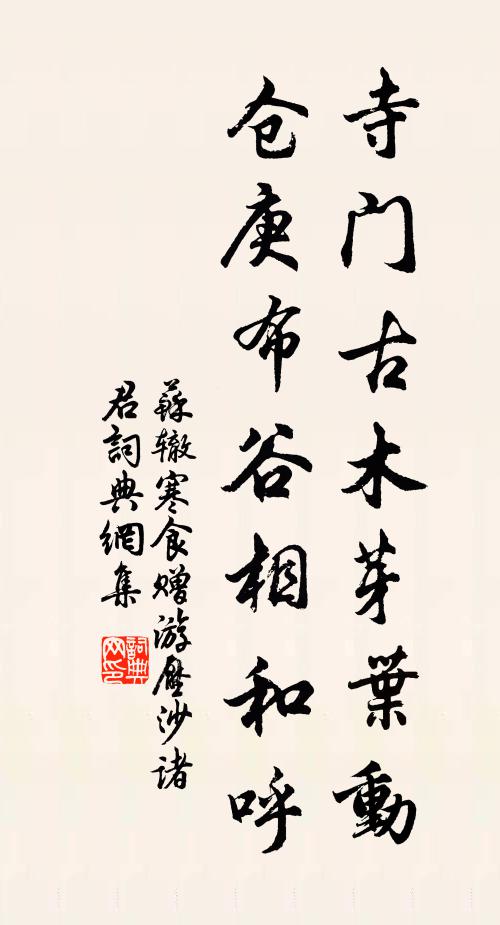 寺门古木芽葉動
仓庚布谷相和呼
蘇辙寒食赠游壓沙诸
君詞典網集
詞典网印